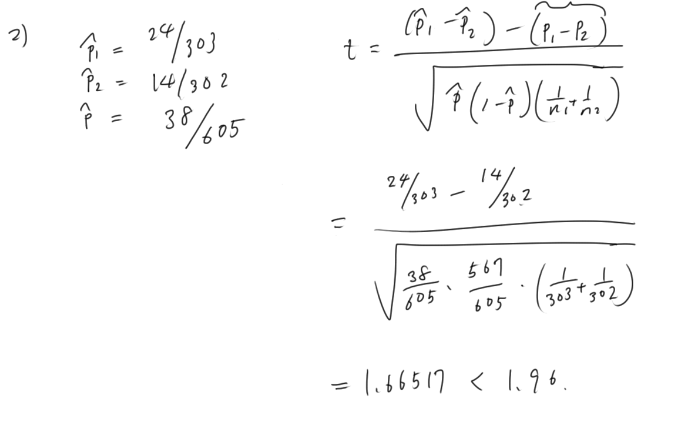 2)
p̂₁ = 24/303
p̂₂ = 14/302
p̂ = 38/605
t = ((p̂₁ - p̂₂) - (p₁ - p₂)) / √(p̂(1-p̂)(1/n₁ + 1/n₂))
= (24/303 - 14/302) / √(38/605 · 567/605 · (1/303 + 1/302))
= 1.66517 < 1.96.